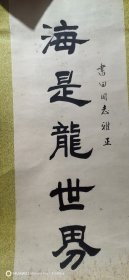 海是龍世界
書田同志雅正